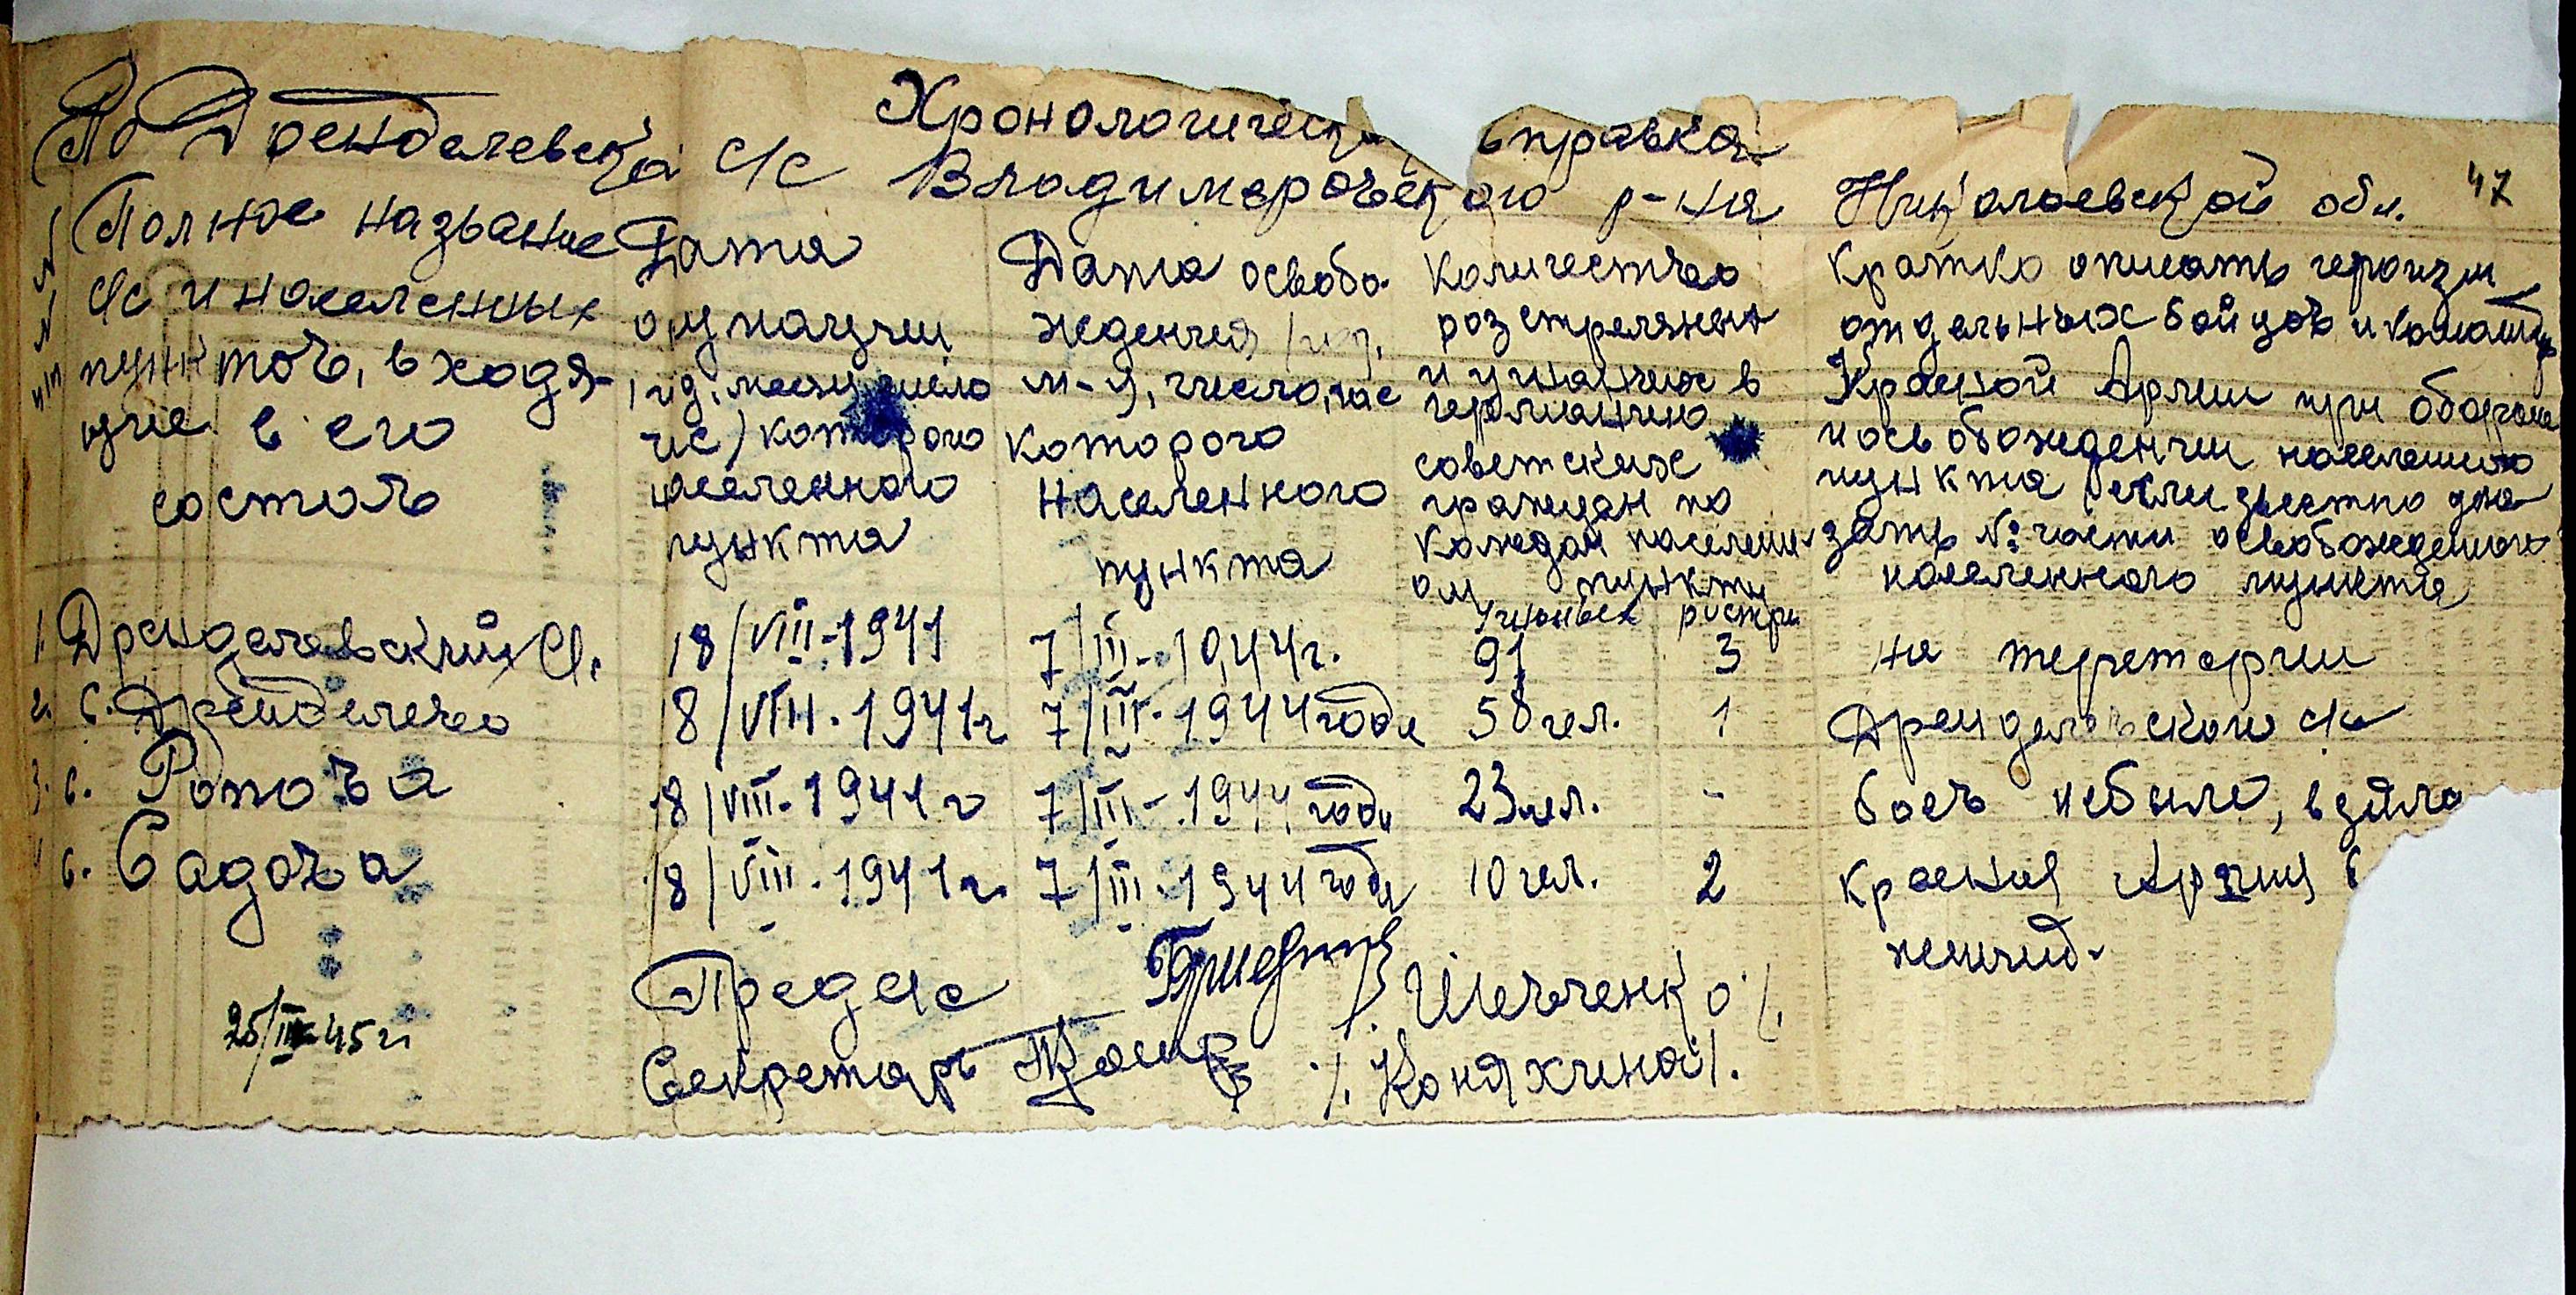 Хронологическ справка
По Дренделевской с/с Владимировского р-на Николаевской обл. 47
№ № п/п
Полное название
с/с и населенных
пунктов, входя-
щие в его
состав
Дата
окупации
год, месяц число
час) которого
населенного
пункта
Дата освобо-
ждения /год,
м-ц, число, час
которого
населенного
пункта
Количество
розстреляных
и угнанных в
германию
советских
граждан по
каждом населен
ом пункту
угнаных розстре
Кратко описать героизм
отдельных бойцов и команд
Красной Армии при обороне
и освобождении населеного
пункта (если звестно ука
зать № части освобождении
населенного пункта
1. Дренделевский с/с 18/VIII-1941 7/III-1944г. 91 3 на терретории
2. с. Дренделево 18/VIII-1941г 7/III-1944 года 58 чел. 1 Дренделевской с/с
3. с. Ропова 18/VIII-1941г 7/III-1944 года 23 чел. - боев небыло, взяла
4 с. Садова 18/VIII-1941г. 7/III-1944 года 10 чел. 2 Красная Армия б
Предс/с /. Шевченко /.
25/III-45г Секретарь /. Коняхчена /.